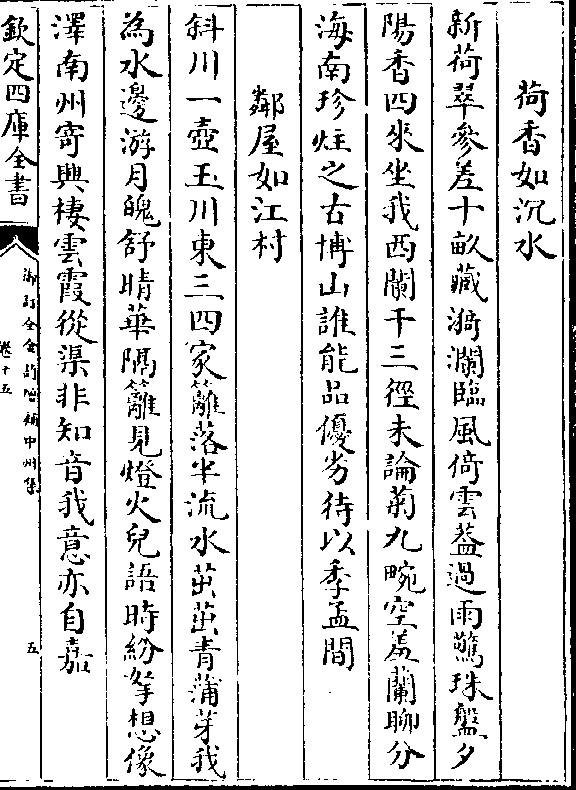 荷香如沉水
新荷翠參差十畝藏漪瀾臨風倚雲葢過雨驚珠盤夕
陽香四來坐我西闌干三徑未論菊九畹空羞蘭聊分
海南珍炷之古博山誰能品優劣待以季孟間
鄰屋如江村
斜川一壺玉川東三四家籬落半流水茁茁青蒲芽我
為水邊游月魄舒晴華隔籬見燈火兒語時紛拏想像
澤南州寄興棲雲霞從渠非知音我意亦自嘉
欽定四庫全書
御訂全金詩增補中州集
卷十五
五